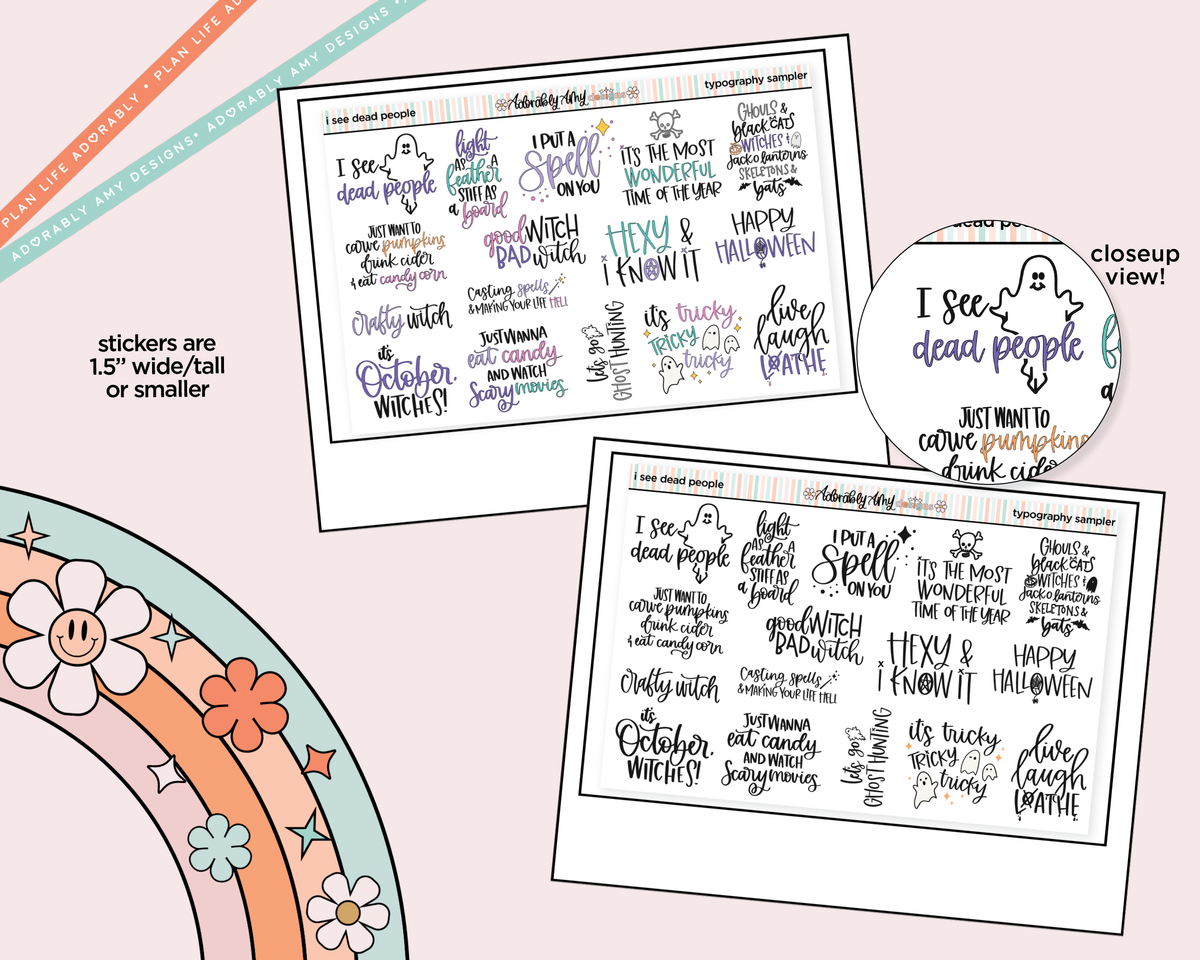 PLAN LIFE ADORABLY • PLAN LIFE AD
ADORABLY AMY DESIGNS • ADORABLY AMY DESIGNS •
i see dead people
Adorably Amy designs
typography sampler
I SEE
dead people
light
AS A
feather
STIFF AS
a board
I PUT A
Spell
ON YOU
IT'S THE MOST
WONDERFUL
TIME OF THE YEAR
GHOULS &
black CATS
WITCHES &
Jack o lanterns
SKELETONS &
bats
JUST WANT TO
carve pumpkins
drink cider
& eat candy corn
good WITCH
BAD witch
HEXY &
i KNOW iT
HAPPY
HALLOWEEN
Crafty witch
Casting spells
& MAKING YOUR LIFE HELL
it's
October,
WITCHES!
JUST WANNA
eat candy
AND WATCH
Scary movies
let's go
GHOST HUNTING
it's tricky
TRICKY
tricky
live
laugh
LOATHE
closeup
view!
dead p
I See
dead people
JUST WANT TO
carve pumpkins
drink cide
stickers are
1.5" wide/tall
or smaller
i see dead people
Adorably Amy designs
typography sampler
I See
dead people
light
AS A
feather
STIFF AS
a board
I PUT A
Spell
ON YOU
IT'S THE MOST
WONDERFUL
TIME OF THE YEAR
GHOULS &
black CATS
WITCHES &
Jack o lanterns
SKELETONS &
bats
JUST WANT TO
carve pumpkins
drink cider
& eat candy corn
good WITCH
BAD witch
HEXY &
i KNOW iT
HAPPY
HALLOWEEN
Crafty witch
Casting spells
& MAKING YOUR LIFE HELL
it's
October,
WITCHES!
JUST WANNA
eat candy
AND WATCH
Scary movies
let's go
GHOST HUNTING
it's tricky
TRICKY
tricky
live
laugh
LOATHE